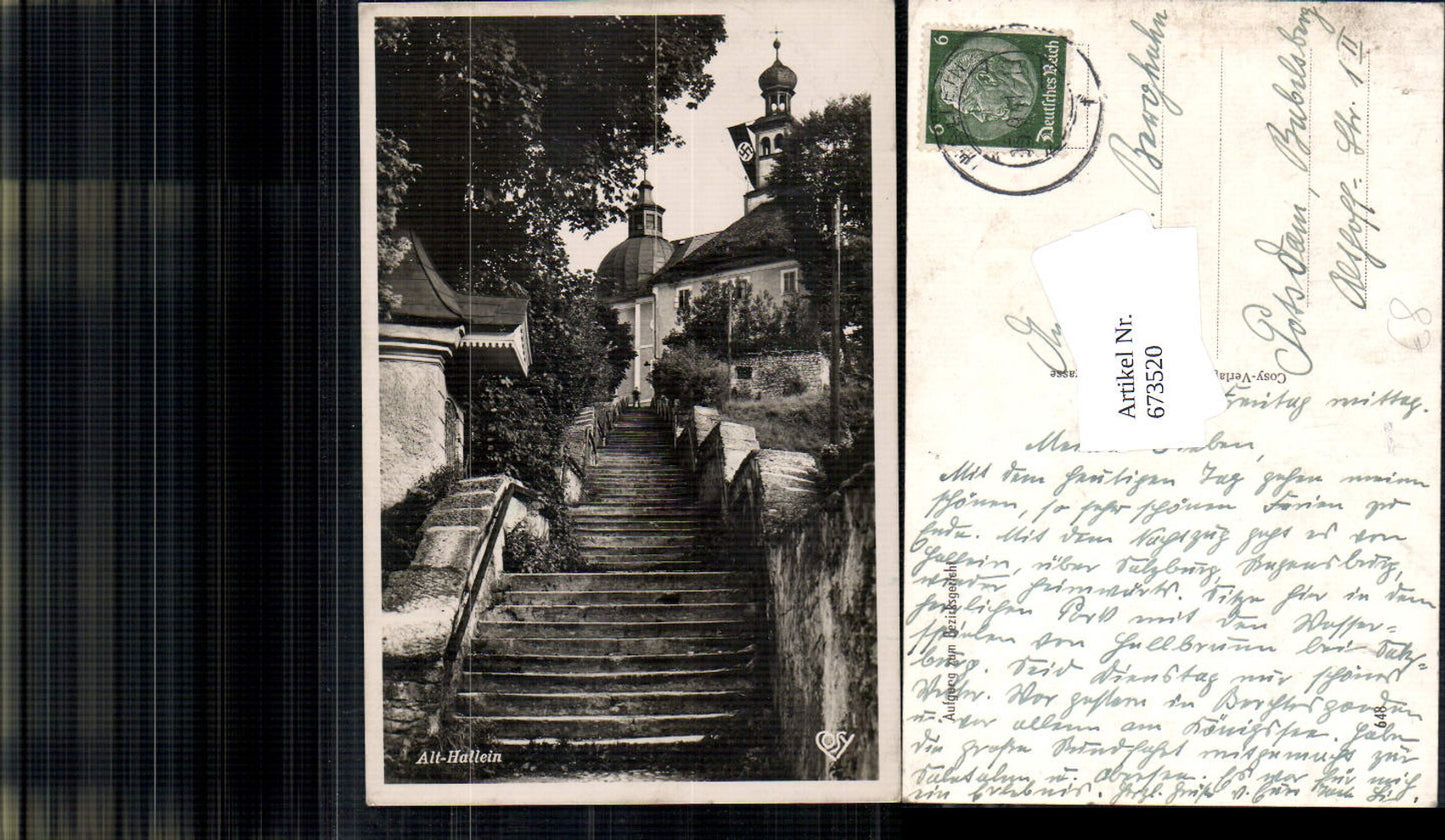 Alt-Hallein
COSY
6 6
Deutsches Reich
Berghuhn
Potsdam, Babelsberg
Althoff= Str. 1 II
68
Artikel Nr.
673520
Cosy-Verlag
Freitag mittag.
Lieben,
Mit dem heutigen Tag gehen meine
schönen, so sehr schönen Ferien zu
Ende. Mit dem Nachtzug geht es von
Hallein, über Salzburg, Regensburg,
wieder heimwärts. Sitze hier in dem
herrlichen Park mit den Wasser=
spielen von Hellbrunn bei Salz=
burg. Seid Dienstag nur schönes
Wetter. War gestern in Berchtesgaden
u. vor allem am Königssee. Habe
die große Rundfahrt mitgemacht zur
Saletalm u. Obersee. Es war für mich
ein Erlebnis. Herzl. Grüße v.
Aufgang zum Bezirksgericht
648